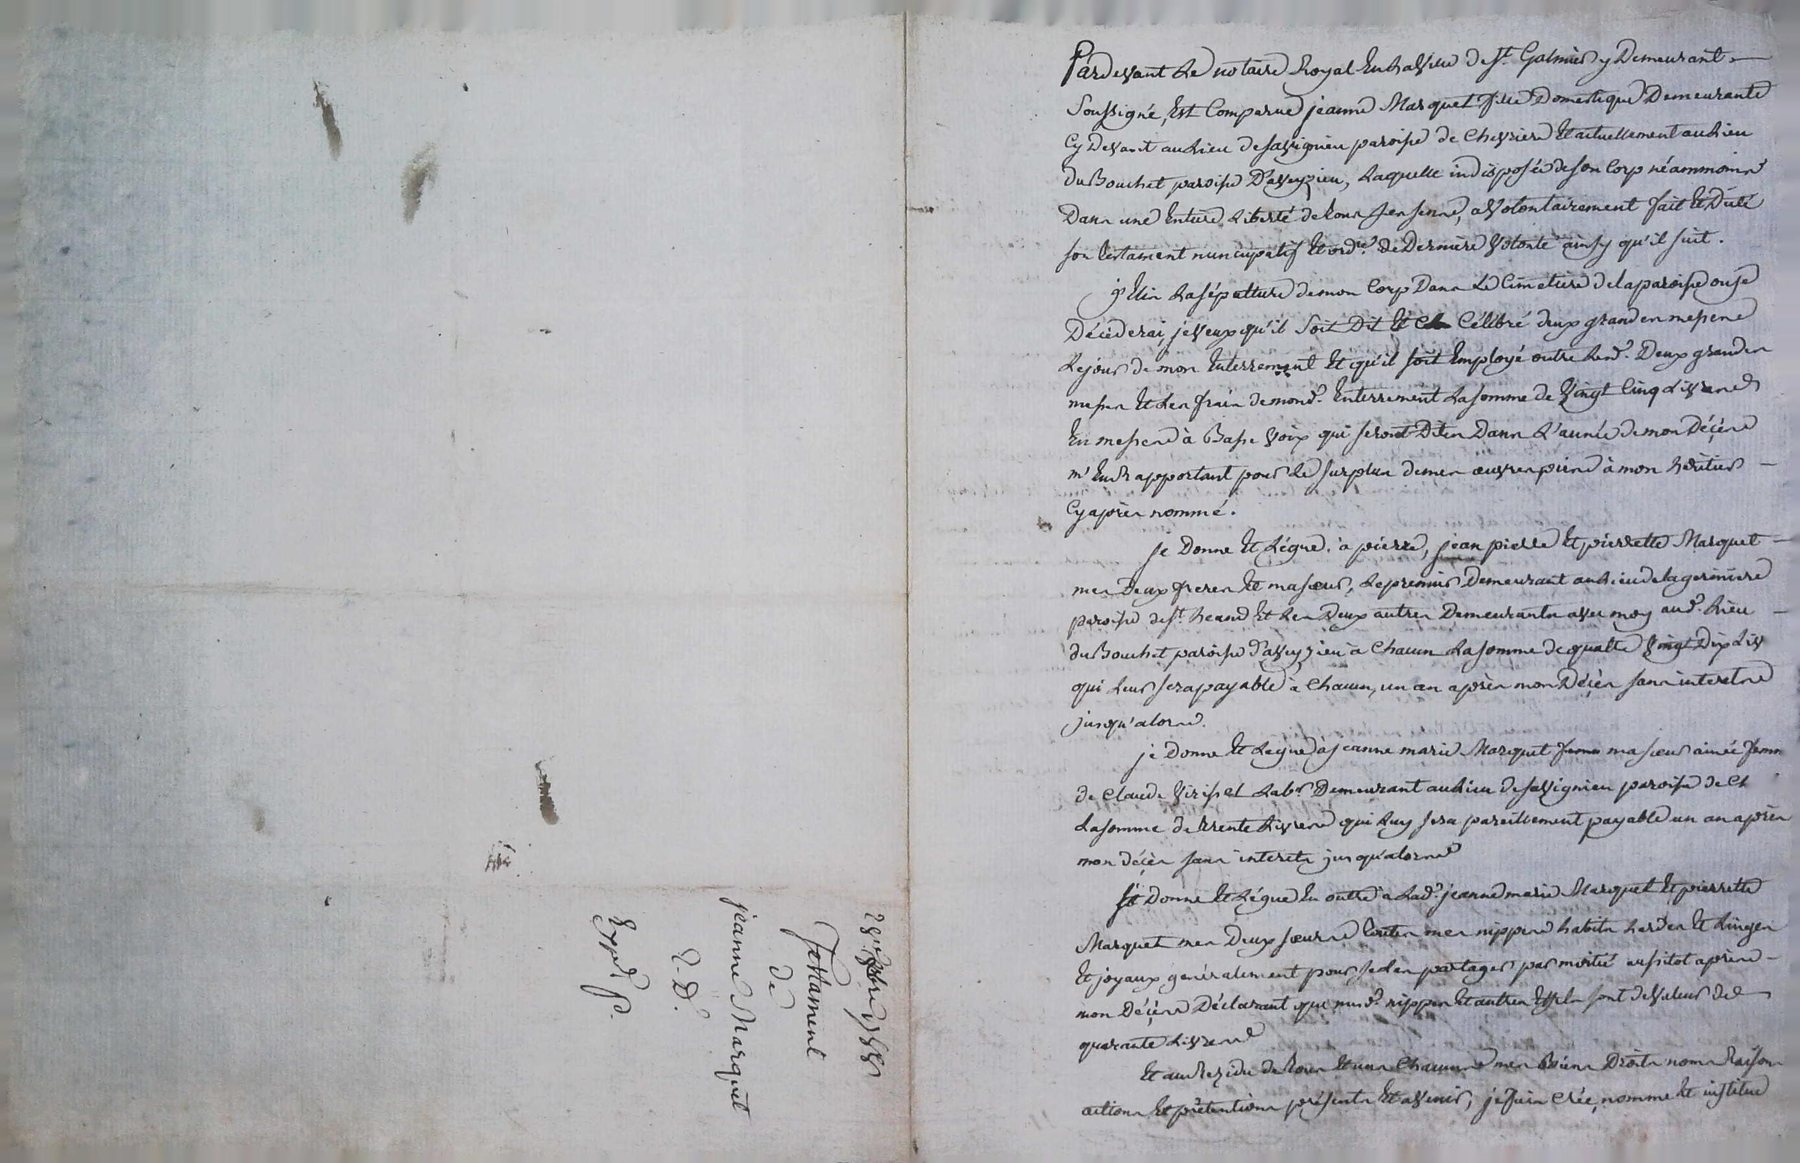 Pardevant Le notaire Royal En La Ville de St. Galmier y Demeurant
Soussigné, Est Comparue jeanne Marquet fille Domestique Demeurante
Cy Devant au Lieu de savignieu paroisse de Chevriere Et actuellement au Lieu
du Bouchet paroisse D'aveyzieu, Laquelle indisposée de son Corp néammoins
Dans une Entiere Liberté de tous ses sens, a Volontairement fait Et Dicté
son testament nuncupatif Et ord.re de Derniere Volonté ainsy qu'il suit.
Elis La sépulture de mon Corp Dans Le Cimetiere de la paroisse ou je
Décéderai, je Veux qu'il Soit Dit Et Célébré deux grandes messes
Le jour de mon Enterrement Et qu'il soit Employé outre Lesd. Deux grandes
messes Et Les frais de mond. Enterrement La somme de Vingt Cinq Livres
En messes à Basse Voix qui seront Dites Dans L'année de mon Décès
m'En Rapportant pour Le surplus de mes œuvres pies à mon héritier
Cy après nommé.
je Donne Et Légue à pierre, jean pierre Et pierrette Marquet
mes Deux freres Et ma sœur, Le premier Demeurant au Lieu de la
paroisse de St. heand Et Les Deux autres Demeurants avec moy aud. Lieu
du Bouchet paroisse d'aveyzieu à Chacun La somme de quatre Vingt Dix Liv
qui Leur sera payable à Chacun, un an après mon Décès sans interets
jusqu'alors.
je Donne Et Legue à jeanne marie Marquet ma sœur ainée femm
de Claude Lab.r Demeurant au Lieu de savignieu paroisse de Ch
La somme de trente Livres qui Luy sera pareillement payable un an après
mon décès sans interets jusqu'alors
je Donne Et Légue En outre à Lad. jeanne marie Marquet Et pierrette
Marquet mes Deux sœurs toutes mes nippes habits hardes Et Linges
Et joyaux généralement pour se Les partager par moitié aussitot après
mon Décès Déclarant que mesd. nippes Et autres Effets sont de Valeur de
quarante Livres
Et au Rezidu de tous Et uns Chacuns mes Biens Droits noms Raisons
actions Et prétentions présents Et avenir, je fais Crée, nomme Et institue
Testament
de
jeanne Marquet
Exp.d